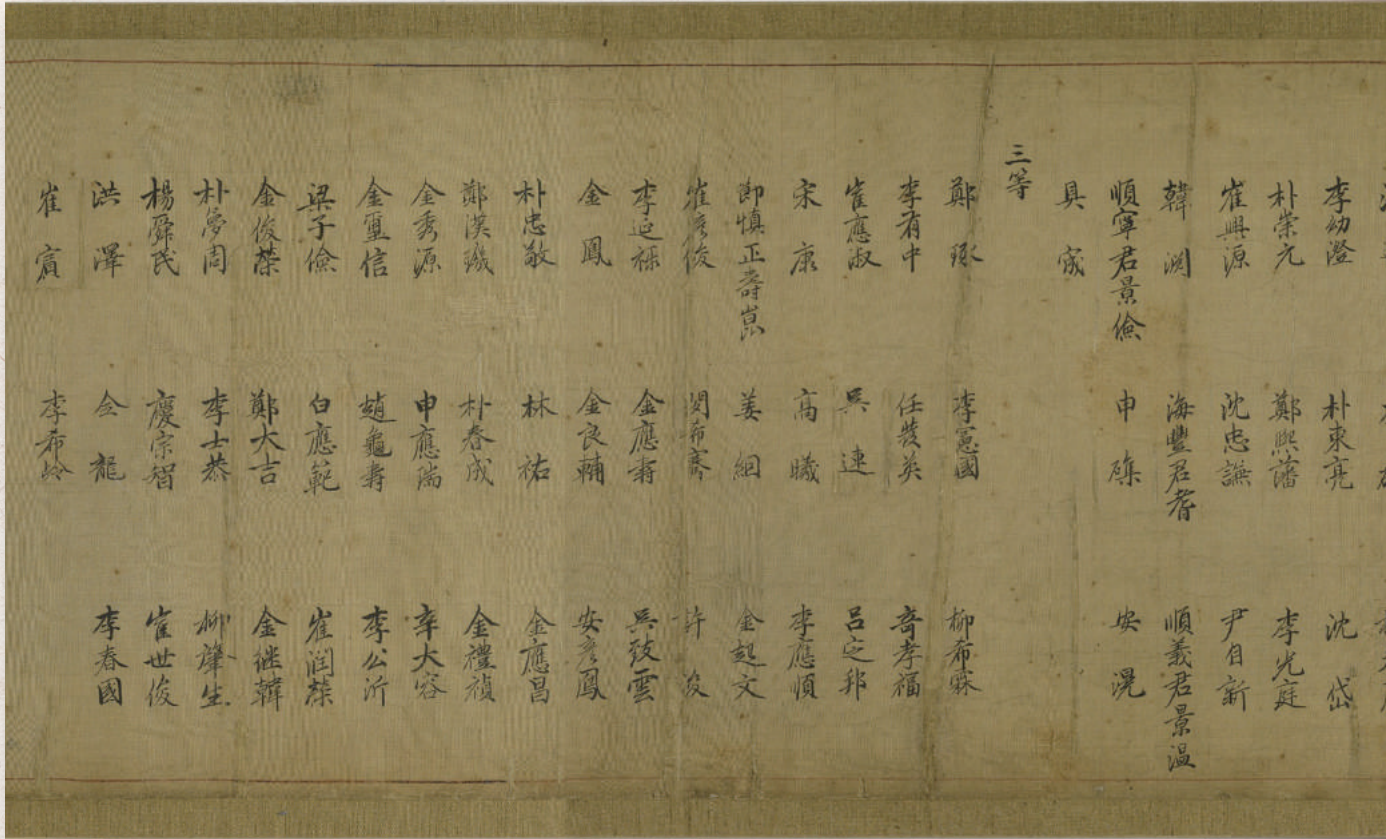 李幼澄 朴東亮 沈岱
朴崇元 鄭熙藩 李光庭
崔興源 沈忠謙 尹自新
韓淵 海豐君耆 順義君景溫
順寧君景儉 申磼 安滉
具宬
三等
鄭琢 李憲國 柳希霖
李有中 任發英 奇孝福
崔應淑 吳連 呂定邦
宋康 高曦 李應順
節愼正壽崑 姜絪 金起文
崔彥俊 閔希騫 許浚
李延祿 金應壽 吳致雲
金鳳 金良輔 安彥鳳
朴忠敬 林祐 金應昌
鄭漢璣 朴春成 金禮禎
金秀源 申應瑞 辛大容
金璽信 趙龜壽 李公沂
梁子儉 白應範 崔潤榮
金俊榮 鄭大吉 金繼韓
朴夢周 李士恭 柳肇生
楊舜民 慶宗智 崔世俊
洪澤 全龍 李春國
崔賓 李希齡